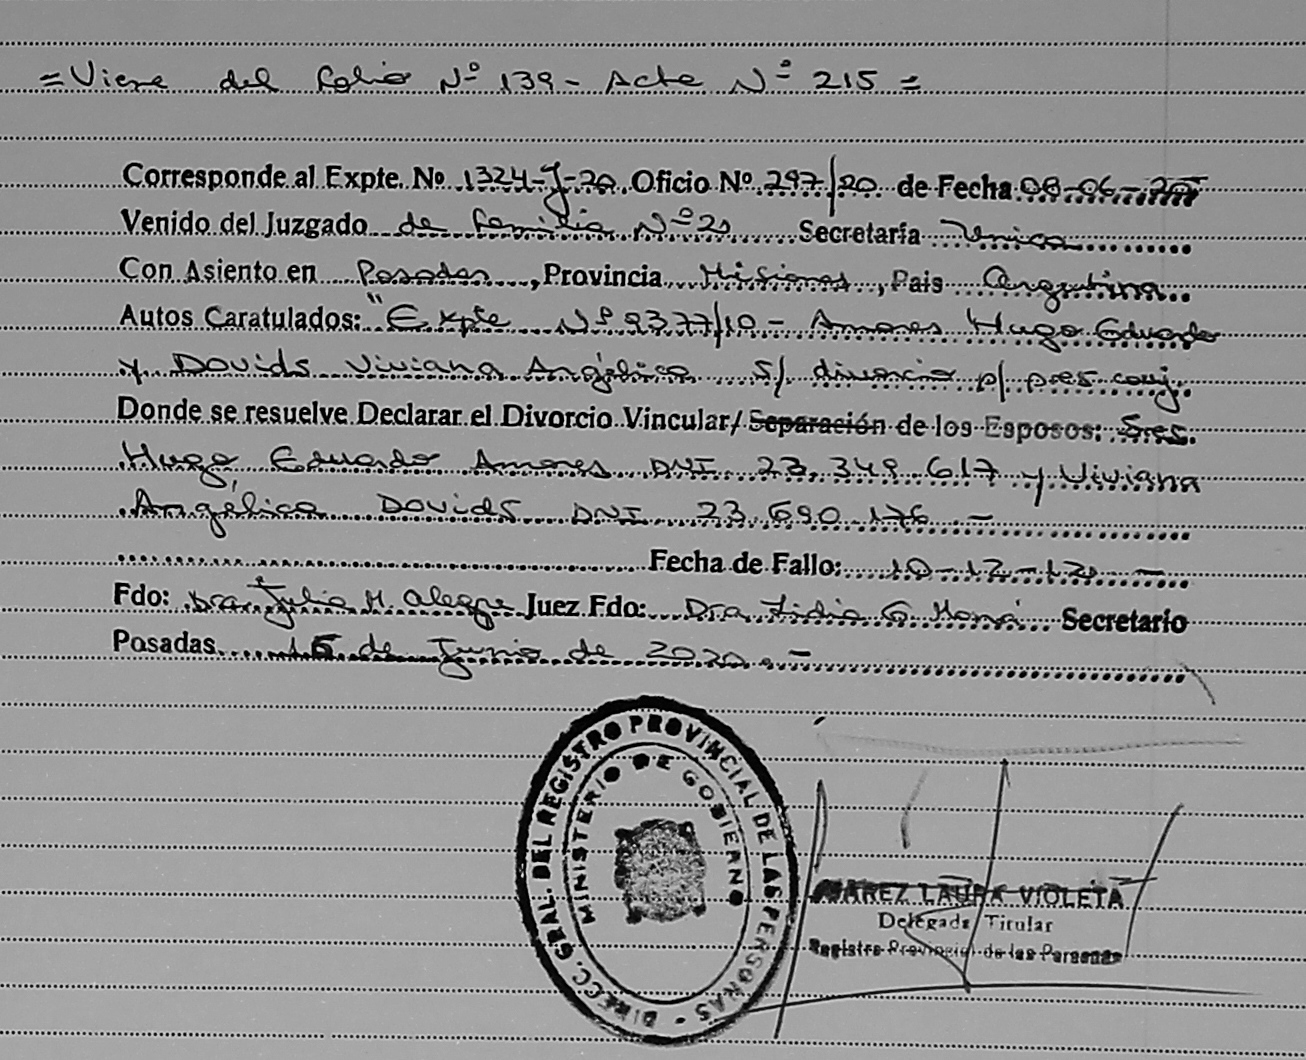 = Viene del folio Nº 139 - Acta Nº 215 =
Corresponde al Expte. Nº 1324-J-20. Oficio Nº 297/20 de Fecha 08-06-20
Venido del Juzgado de familia Nº 2 Secretaría Unica
Con Asiento en Posadas, Provincia Misiones, Pais Argentina
Autos Caratulados: "Expte Nº 9377/10 - Amores Hugo Eduardo
y Dovids Viviana Angélica s/ divorcio p/ pres. conj.
Donde se resuelve Declarar el Divorcio Vincular/ Separación de los Esposos: Sres.
Hugo Eduardo Amores DNI 23.349.617 y Viviana
Angélica Dovids DNI 23.690.176 -
Fecha de Fallo: 10-12-12 -
Fdo: Dra. Julia M. Alegre Juez Fdo: Dra Lidia G. Secretario
Posadas 16 de Junio de 2020. -
DIRECC. GRAL. DEL REGISTRO PROVINCIAL DE LAS PERSONAS -
MINISTERIO DE GOBIERNO
LAURA VIOLETA
Delegada Titular
Registro Provincial de las Personas